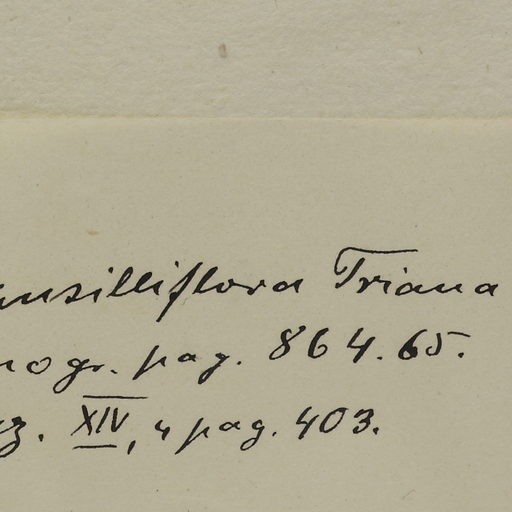 ansilliflora Triana
nogr. pag. 864.65.
z. XIV, 4 pag. 403.